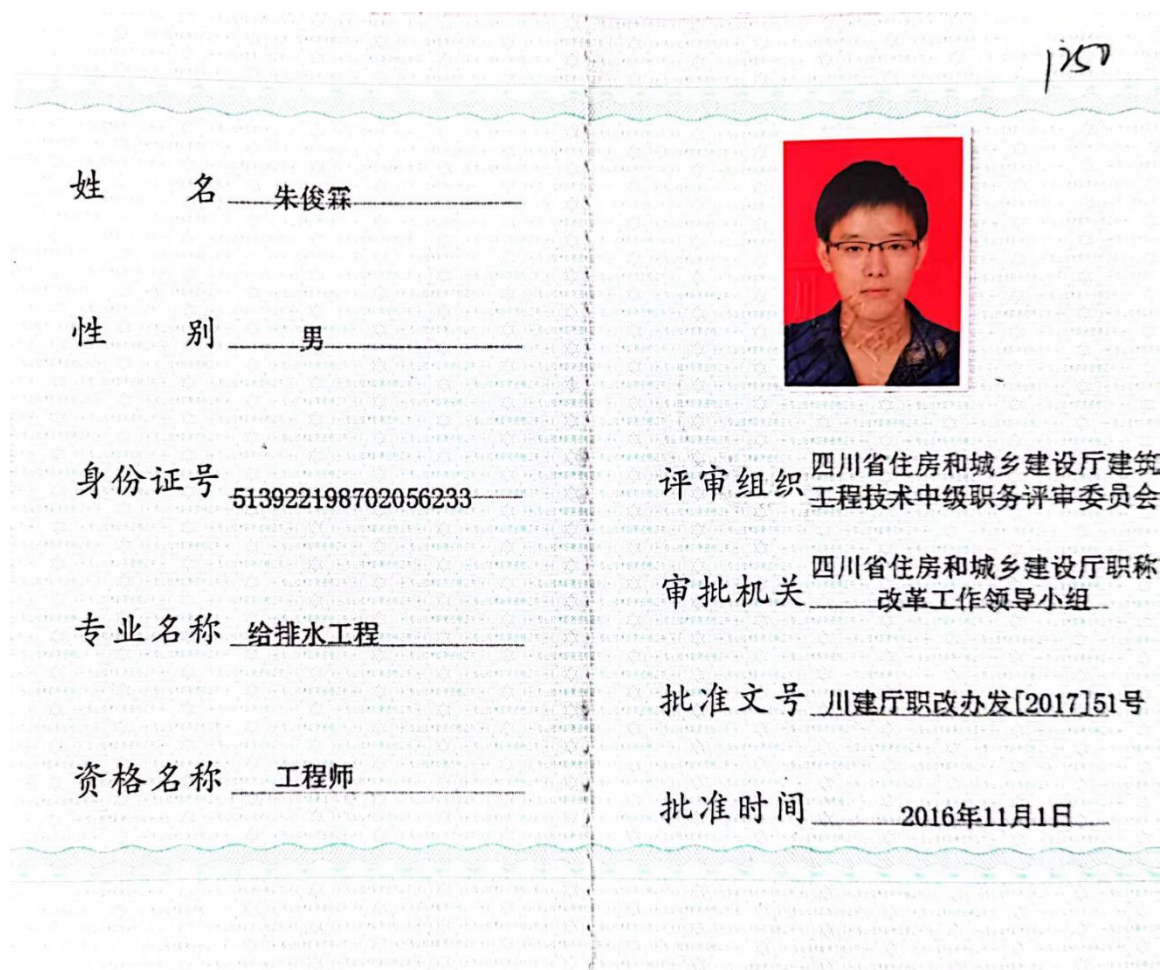 1250
姓 名 朱俊霖
性 别 男
身份证号 513922198702056233
专业名称 给排水工程
资格名称 工程师
评审组织 四川省住房和城乡建设厅建筑
工程技术中级职务评审委员会
审批机关 四川省住房和城乡建设厅职称
改革工作领导小组
批准文号 川建厅职改办发[2017]51号
批准时间 2016年11月1日